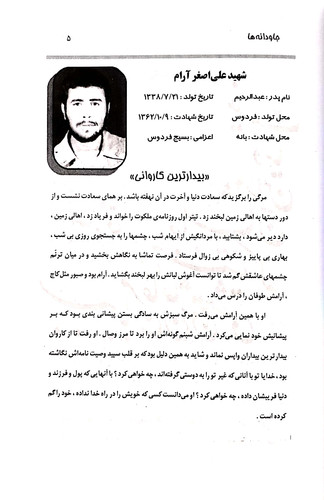 جاودانه‌ها
۵
شهید علی‌اصغر آرام
نام پدر : عبدالرحیم تاریخ تولد : ۱۳۳۸/۷/۲۱
محل تولد : فردوس تاریخ شهادت : ۱۳۶۲/۱۰/۹
محل شهادت : بانه اعزامی : بسیج فردوس
«بیدارترین کاروانی»
مرگی را برگزید که سعادت دنیا و آخرت در آن نهفته باشد . بر همای سعادت نشست و از
دور دستها به اهالی زمین لبخند زد . تیتر اول روزنامه‌ی ملکوت را خواند و فریاد زد ، اهالی زمین ،
دارد دیر می‌شود ، بشتابید ، با مردانگیش از ایهام شب ، چشمها را به جستجوی روزی بی شب ،
بهاری بی پاییز و شکوهی بی زوال فرستاد . فرصت تماشا به نگاهش بخشید و در میان ترنّم
چشمهای عاشقش گم شد تا توانست آغوش لبانش را بهر لبخند بگشاید . آرام بود و صبور مثل کاج
، آرامش طوفان را درس می‌داد .
او با همین آرامش می‌رفت . مرگ سبزش به سادگی بستن پیشانی بندی بود که بر
پیشانیش خود نمایی می‌کرد . آرامش شبنم‌گونه‌اش او را برد تا مرز وصال . او رفت تا از کاروان
بیدارترین بیداران واپس نماند و شاید به همین دلیل بود که بر قلب سپید وصیت نامه‌اش نگاشته
بود ، خدایا تو با آنانی که غیر تو را به دوستی گرفته‌اند ، چه خواهی کرد؟ با آنهایی که پول و فرزند و
دنیا فریبشان داده ، چه خواهی کرد؟ او می‌دانست کسی که خویش را در راه خدا نداده ، خود را گم
کرده است .